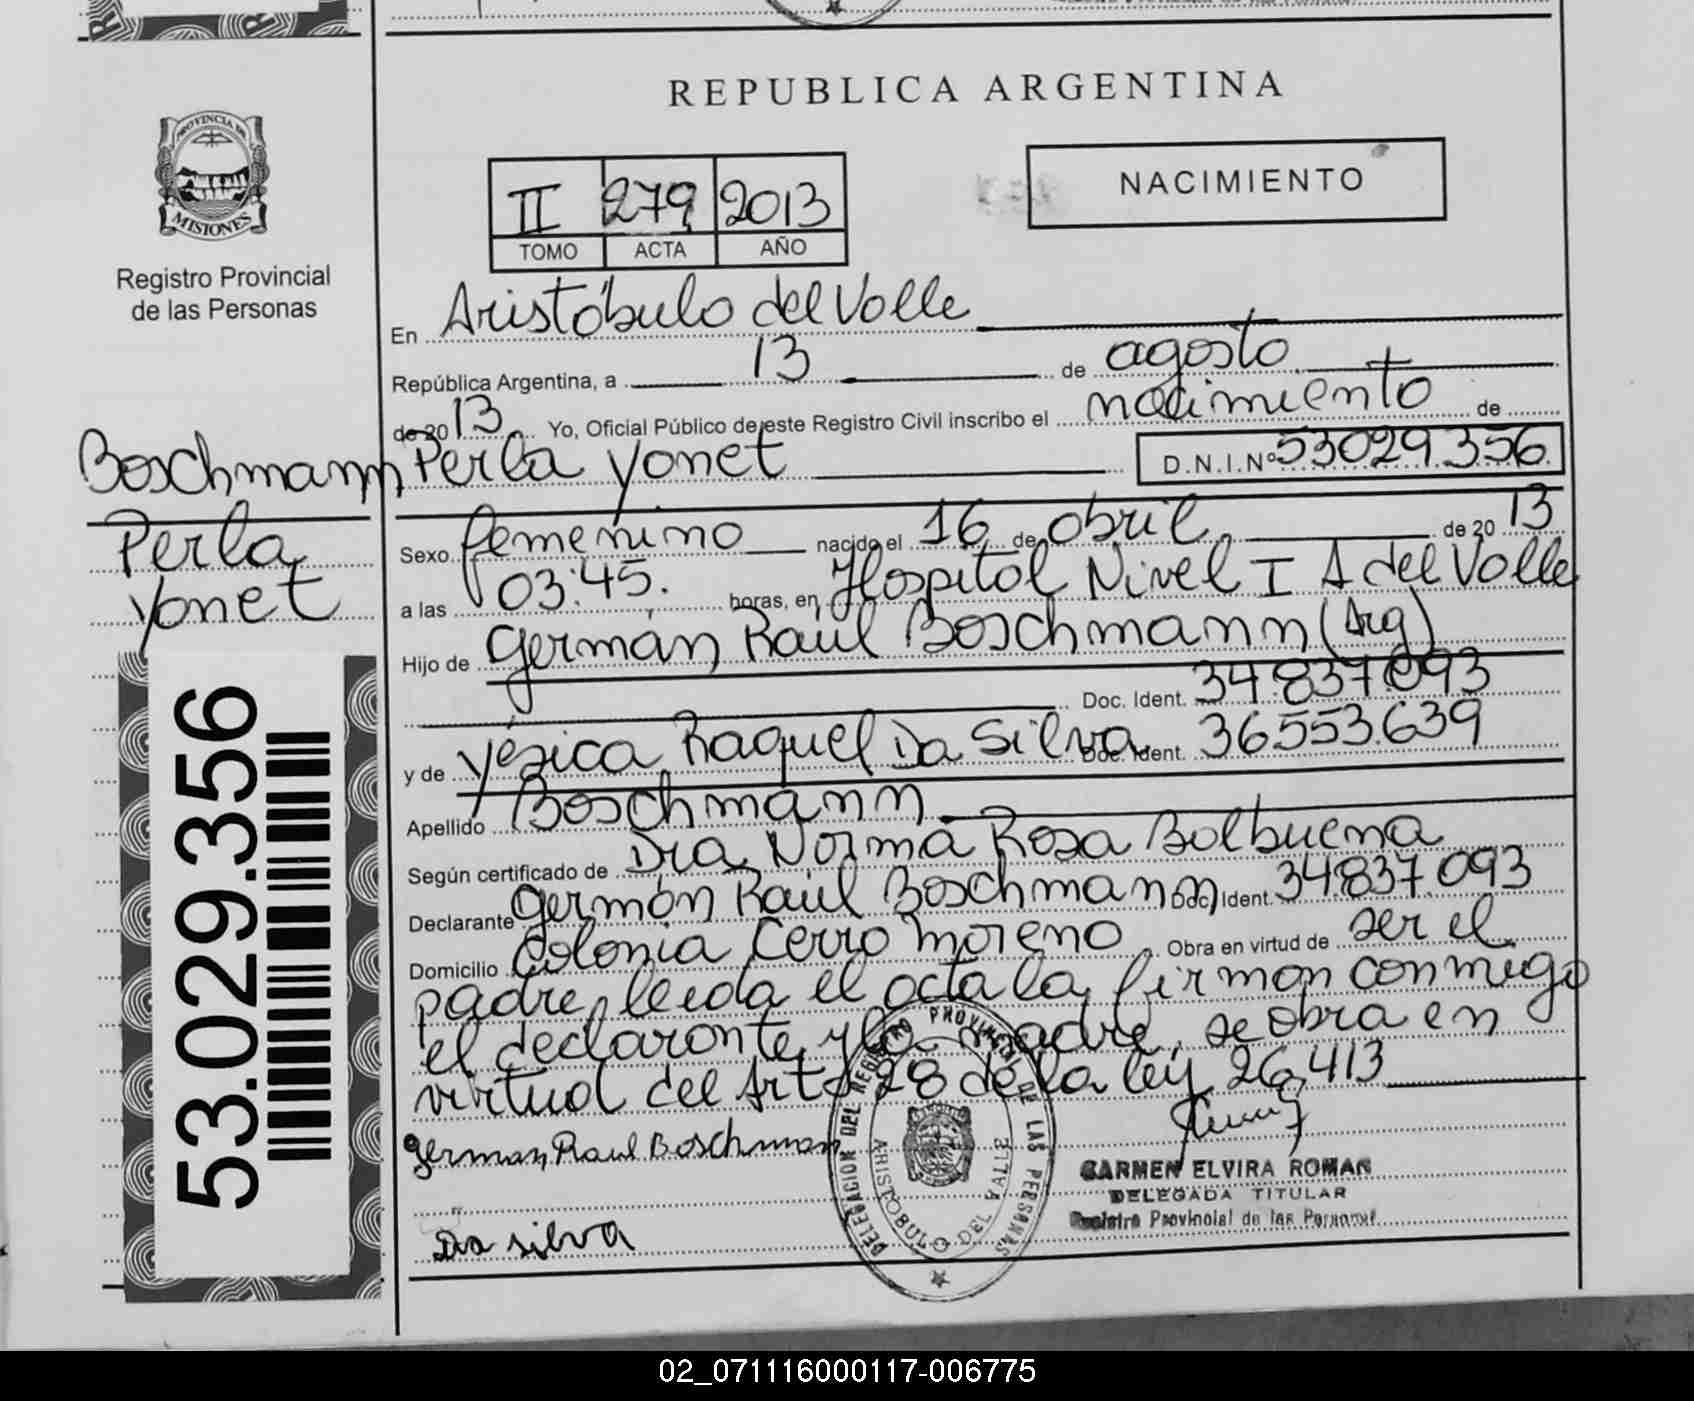 REPUBLICA ARGENTINA
PROVINCIA DE
MISIONES
Registro Provincial
de las Personas
II 279 2013
TOMO ACTA AÑO
NACIMIENTO
En Aristóbulo del Valle
República Argentina, a 13 de agosto
de 2013 Yo, Oficial Público de este Registro Civil inscribo el nacimiento de
Boschmann
Perla
Yanet
Perla Yanet D.N.I.Nº 53029.356
Sexo femenino nacido el 16 de abril de 2013
a las 03:45. horas, en Hospital Nivel I A del Valle
Hijo de Germán Raúl Boschmann (Arg)
Doc. Ident. 34.837.093
y de Yésica Raquel Da Silva Doc. Ident. 36553.639
Apellido Boschmann
Según certificado de Dra Norma Rosa Balbuena
Declarante Germán Raúl Boschmann Doc. Ident. 34837.093
Domicilio Colonia Cerro Moreno Obra en virtud de ser el
padre, leída el acta la firman conmigo
el declarante y la madre, se obra en
virtual del Art 28 de la ley 26.413
German Raul Boschman
Da silva
DELEGACION DEL REGISTRO PROVINCIAL DE LAS PERSONAS
ARISTOBULO DEL VALLE
CARMEN ELVIRA ROMAN
DELEGADA TITULAR
Registro Provincial de las Personas
53.029.356
02_071116000117-006775